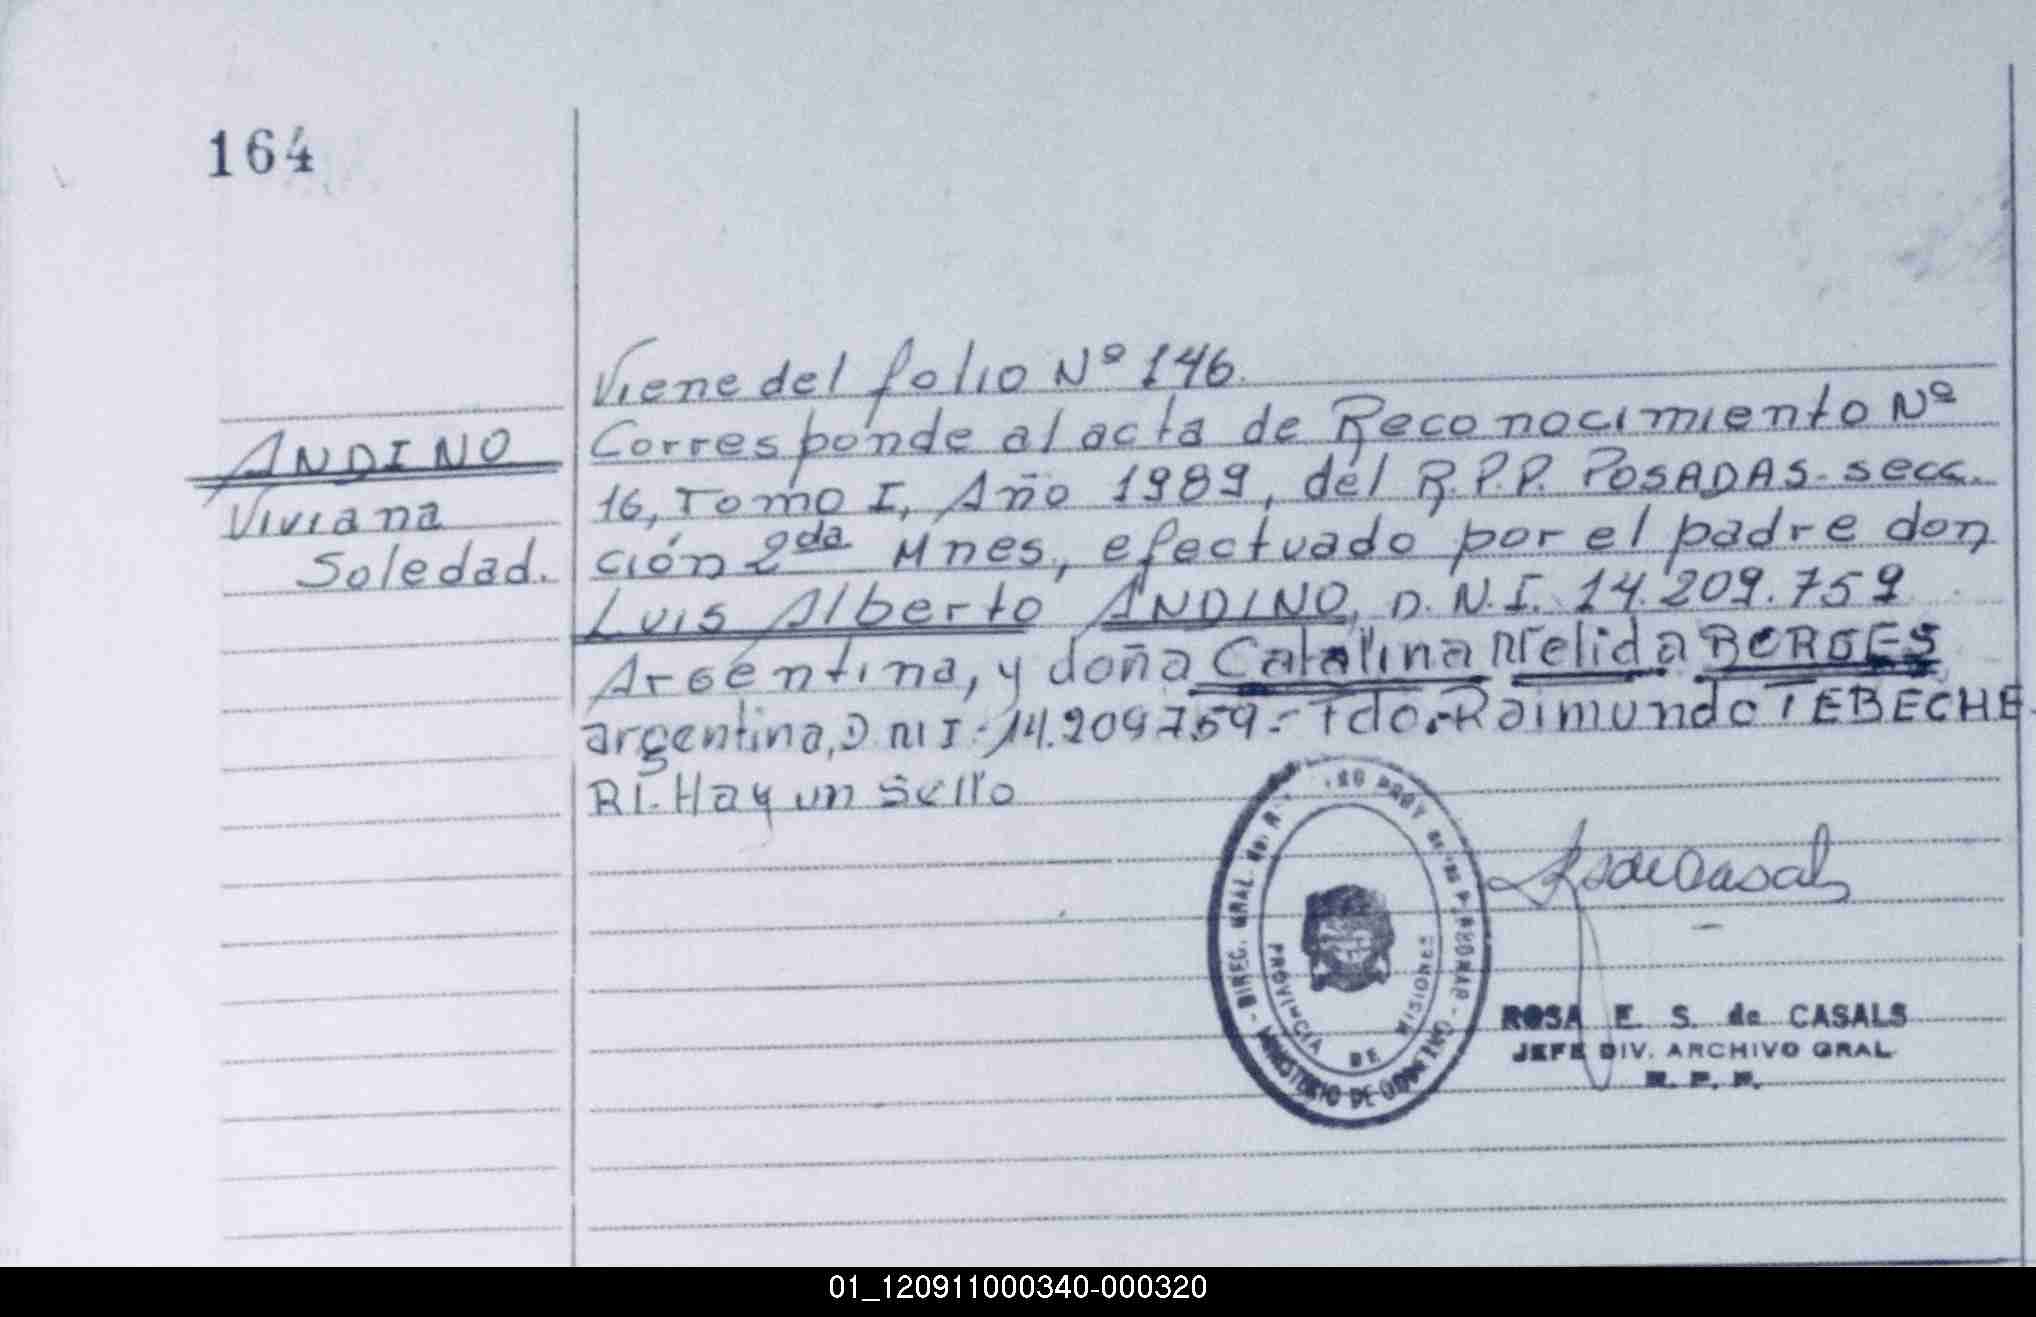 164
Viene del folio Nº 146.
ANDINO
Viviana
Soledad.
Corresponde al acta de Reconocimiento Nº
16, Tomo I, Año 1989, del R.P.P. POSADAS-secc.
ción 2da Mnes., efectuado por el padre don
Luis Alberto ANDINO, D.N.I. 14.209.759
Argentina, y doña Catalina Nelida BORGES
argentina, D NI I-14.209759.- Fdo.-Raimundo TEBECHE.
RI. Hay un sello
DIREC. GRAL. DEL
MINISTERIO DE GOBIERNO
PROVINCIA DE MISIONES
RsdeCasals
ROSA E. S. de CASALS
JEFE DIV. ARCHIVO GRAL.
R. P. P.
01_120911000340-000320